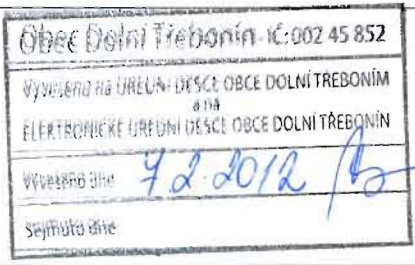 Obec Dolní Třebonín IČ:002 45 852
Vyvěšeno na ÚŘEDNÍ DESCE OBCE DOLNÍ TŘEBONÍM
a na
ELEKTRONICKÉ ÚŘEDNÍ DESCE OBCE DOLNÍ TŘEBONÍN
Vyvěšeno dne 7.2.2012
Sejmuto dne